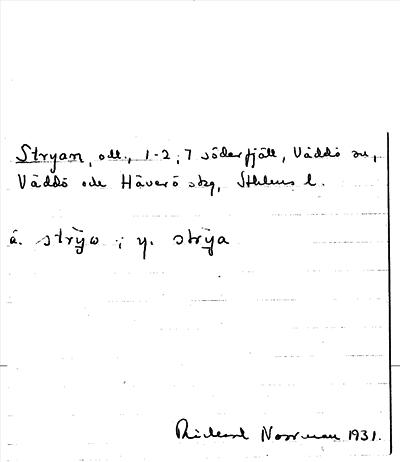 Stryan, odl., 1-2; 7 söderfjäll, Väddö sn,
Väddö och Häverö skg, Sthlms l.
ä. strỳω ; y. strỳa
Rickard Norrman 1931.